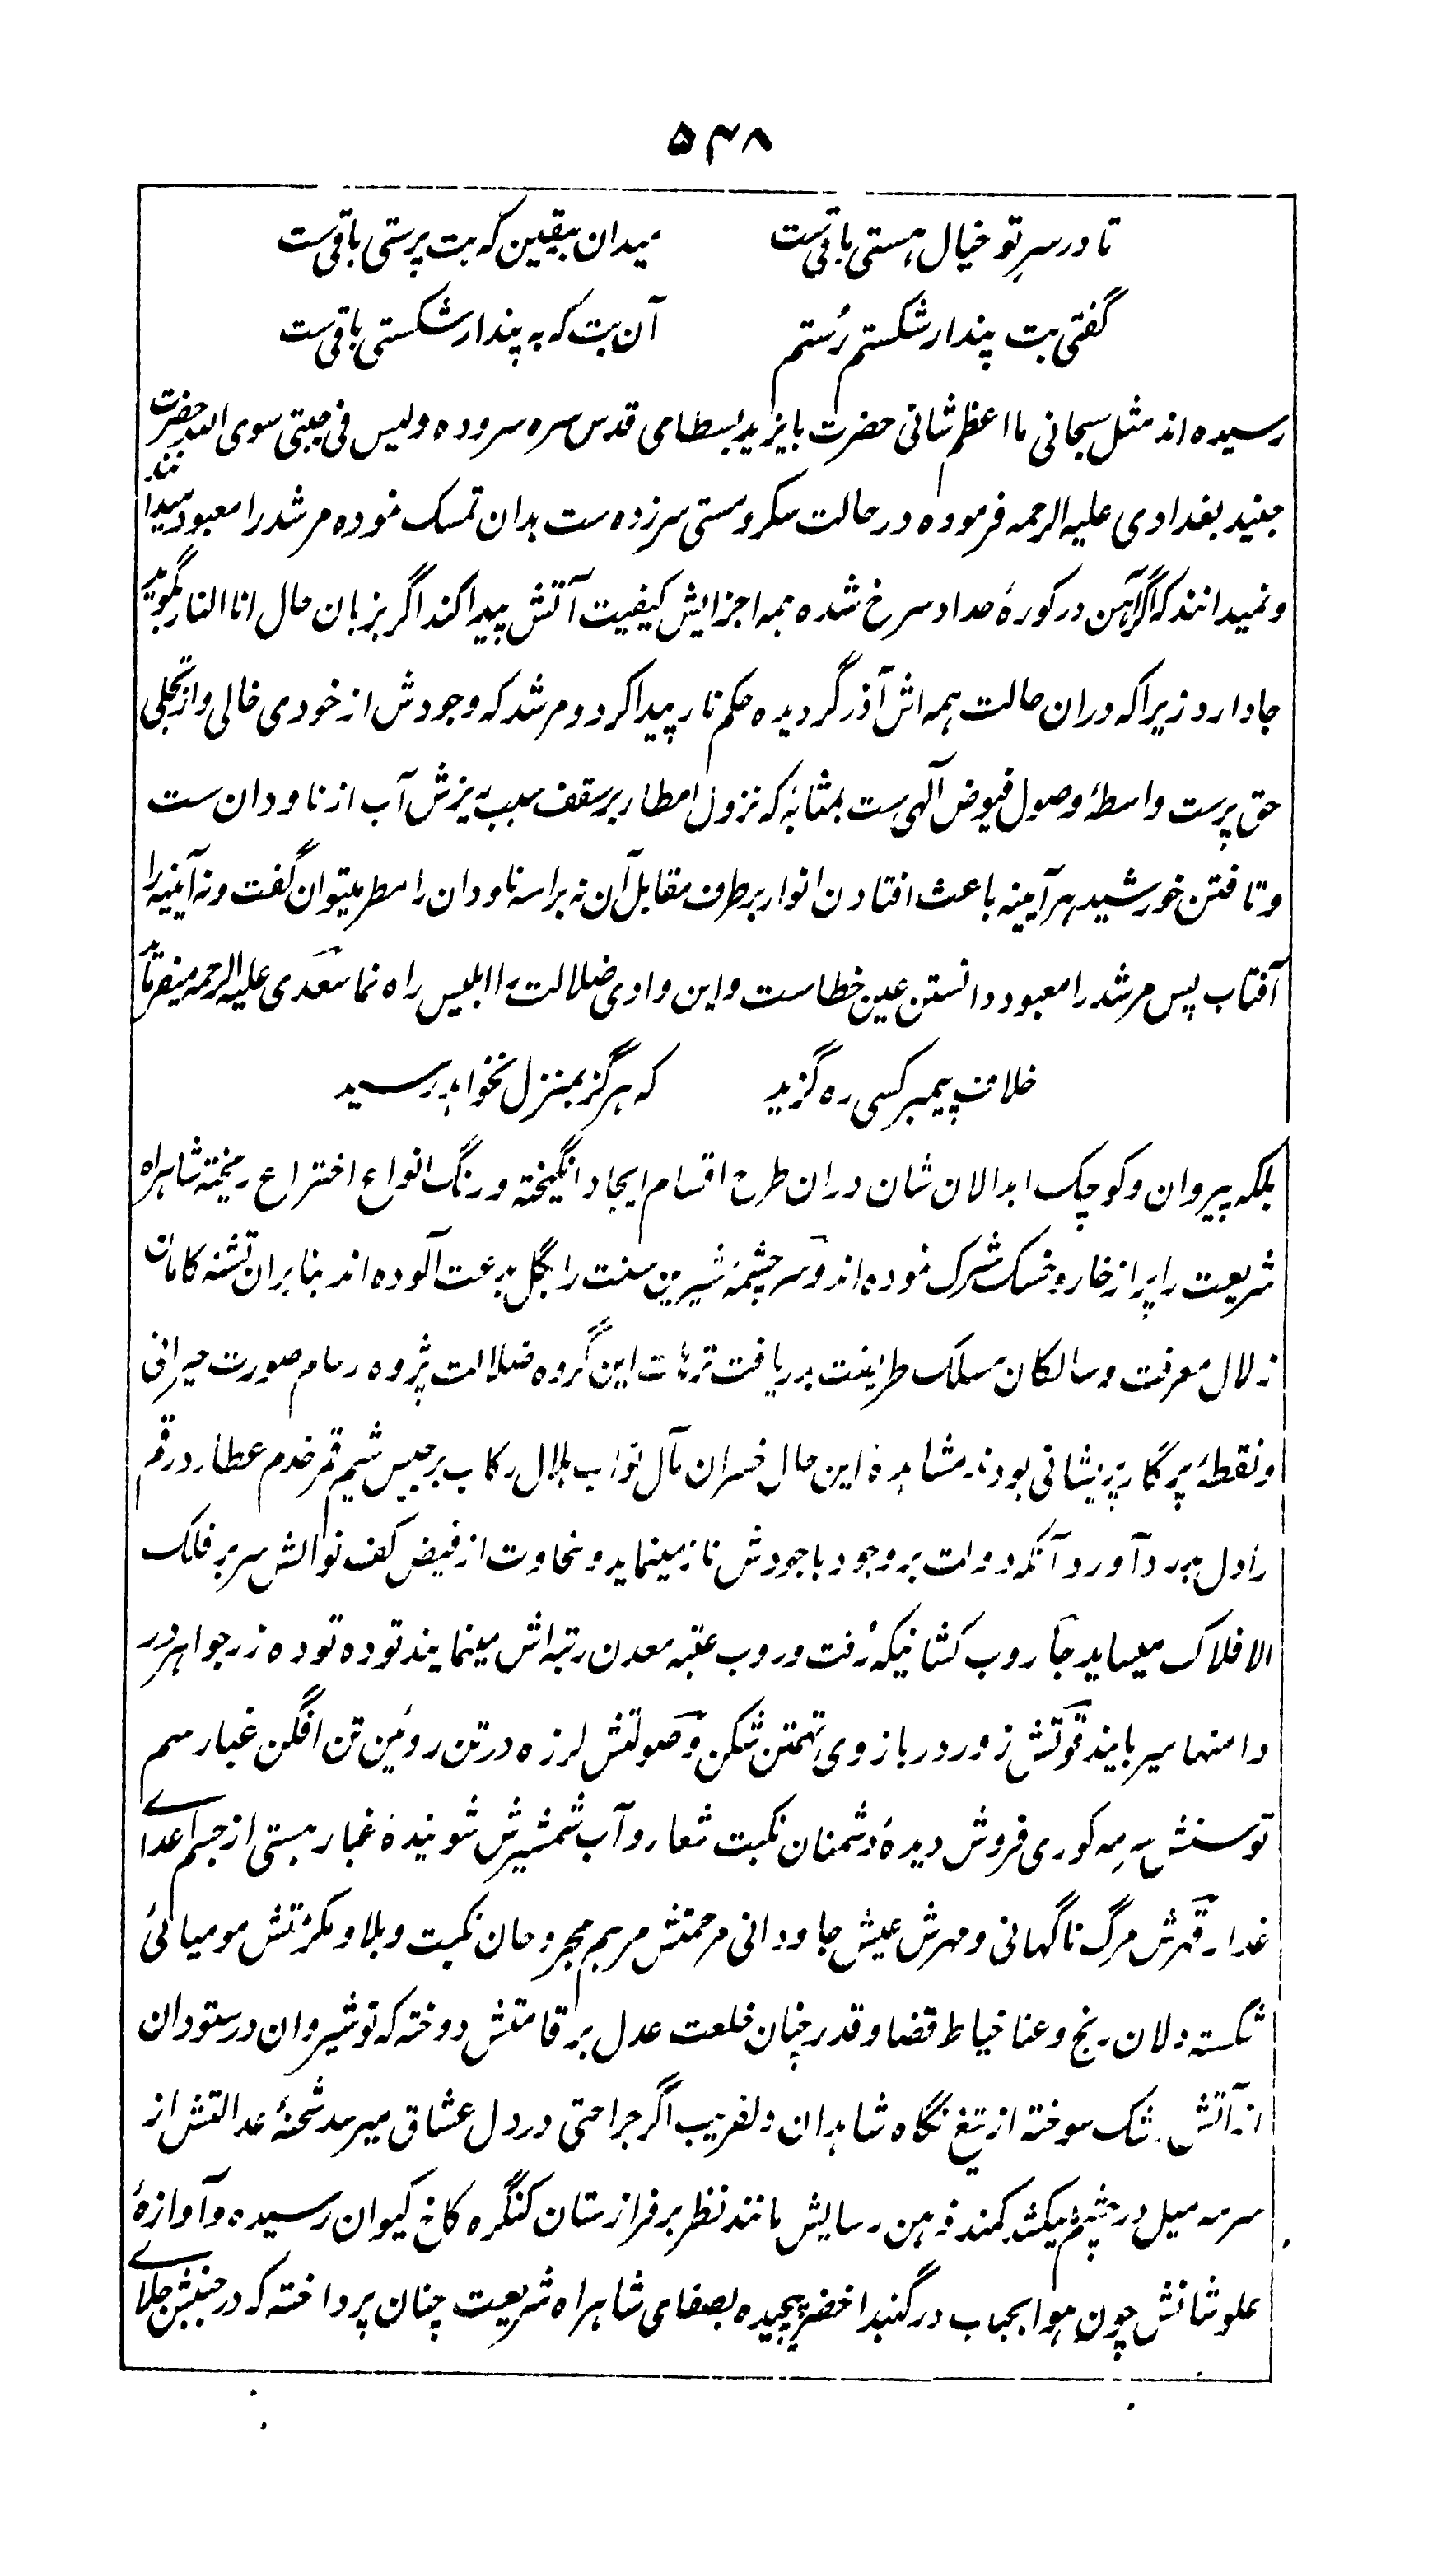 ۵۴۸
تا در سرِ تو خیال ہستی باقی ست میدان بیقین کہ بت پرستی باقی ست
گفتی بت پندار شکستم رُستم آن بت کہ بہ پندار شکستی باقی ست
رسیدہ اند مثل سبحانی ما اعظم شانی حضرت بایزید بسطامی قدس سرہ سرودہ و لیس فی جبتی سوی اللہ حضرت
جنید بغدادی علیہ الرحمہ فرمودہ در حالت سکر و مستی سرزدہ ست بدان تمسک نمودہ مرشد را معبود میدانند
و نمیدانند کہ اگر آہن در کورۂ حداد سرخ شدہ ہمہ اجزایش کیفیت آتش پیدا کند اگر بزبان حال انا النار بگوید
جا دارد زیرا کہ دران حالت ہمہ اش آذر گردیدہ حکم نار پیدا کرد و مرشد کہ وجودش از خودی خالی و از تجلی
حق پرست واسطۂ وصول فیوض آلہی ست بمثابۂ کہ نزول امطار بر سقف سبب ریزش آب از ناودان ست
و تافتن خورشید ہر آیینہ باعث افتادن انوار بر طرف مقابل آن نہ براسہ ناودان را مطر میتوان گفت و نہ آیینہ را
آفتاب پس مرشد را معبود دانستن عین خطاست و این وادی ضلالت را ابلیس راہ نما سعدی علیہ الرحمہ میفرماید
خلاف پیمبر کسی رہ گزید کہ ہرگز بمنزل نخواہد رسید
بلکہ پیروان و کوچک ابدالان شان دران طرح اقسام ایجاد انگیختہ و رنگ انواع اختراع ریختہ شاہراہ
شریعت را پر از خار و خسک شرک نمودہ اند و سرچشمۂ شیرین سنت را بگل بدعت آلودہ اند بنا بران تشنہ کامان
زلال معرفت و سالکان مسلک طریقت بدریافت ترہات این گروہ ضلالت پژوہ رسام صورت حیرانی
و نقطۂ پرکار پریشانی بودند مشاہدۂ این حال خسران مآل نواب ہلال رکاب برجیس شیم قمر خدم عطارد رقم
را دل بدرد آورد آنکہ دولت بر وجود باجودش ناز مینماید و سخاوت از فیض کف نوالش سر بر فلک
الافلاک میساید جاروب کشانیکہ رُفت و روب عتبہ معدن رتبہ اش مینمایند تودہ تودہ زر جواہر در
دامنہا میربایند قوتش زور در بازوی تہمتن شکن و صولتش لرزہ در تن روئین تن افگن غبار سم
توسنش سرمہ کوری فروش دیدۂ دشمنان نکبت شعار و آب شمشیرش شویندۂ غبار ہستی از جسم اعدای
غدار قہرش مرگ ناگہانی و مہرش عیش جاودانی مرحمتش مرہم مجروحان نکبت و بلا و مکرمتش مومیائی
شکستہ دلان رنج و عنا خیاط قضا و قدر چنان خلعت عدل بر قامتش دوختہ کہ نوشیروان در ستودان
از آتش رشک سوختہ از تیغ نگاہ شاہدان دلفریب اگر جراحتی در دل عشاق میرسد شحنۂ عدالتش از
سرمہ میل در چشم میکشد کمند ذہن رسایش مانند نظر بر فرازستان کنگرہ کاخ کیوان رسیدہ و آوازۂ
علو شانش چون ہوا بحباب در گنبد اخضر پیچیدہ بصفای شاہراہ شریعت چنان پرداختہ کہ در جنبش جلای